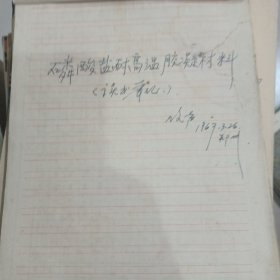 磷酸盐耐高温胶凝材料
（读书笔记）
1963.3.26.
郑州